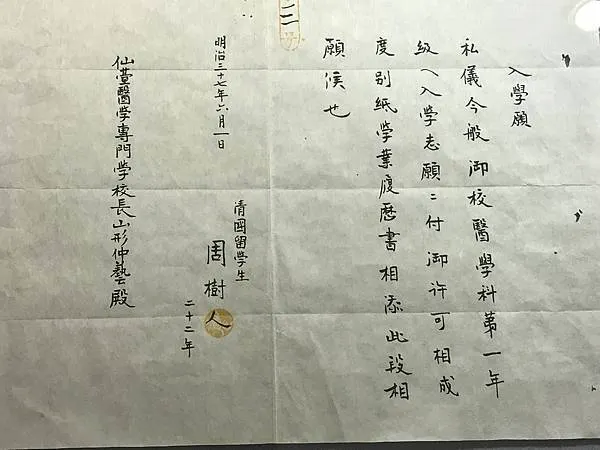 入學願
私儀今般御校醫學科第一年
級ヘ入学志願ニ付御許可相成
度别紙学業履歴書相添此段相
願候也
明治三十七年六月一日
清國留学生
周樹人
二十二年
仙䑓醫学專門学校長山形仲藝殿